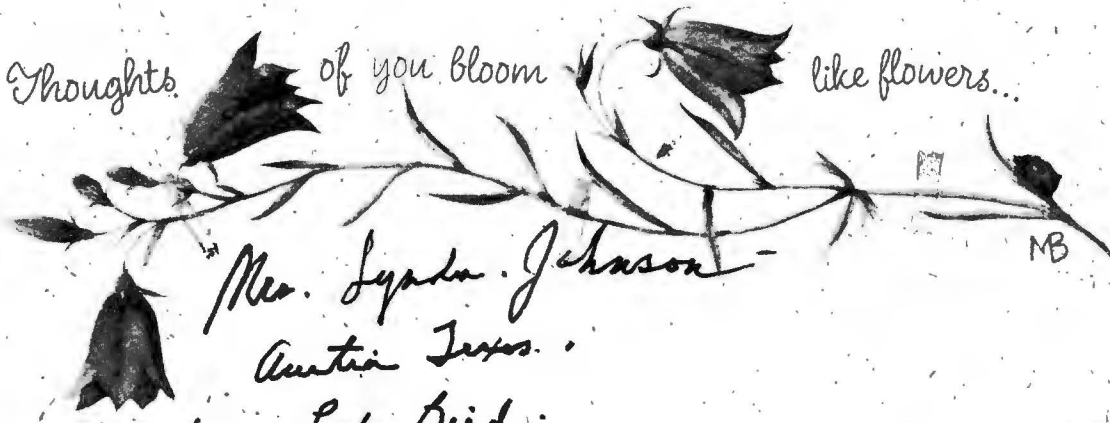 Thoughts of you bloom like flowers...
MB
Mrs. Lyndon Johnson -
Austin Texas.
Lady Bird.